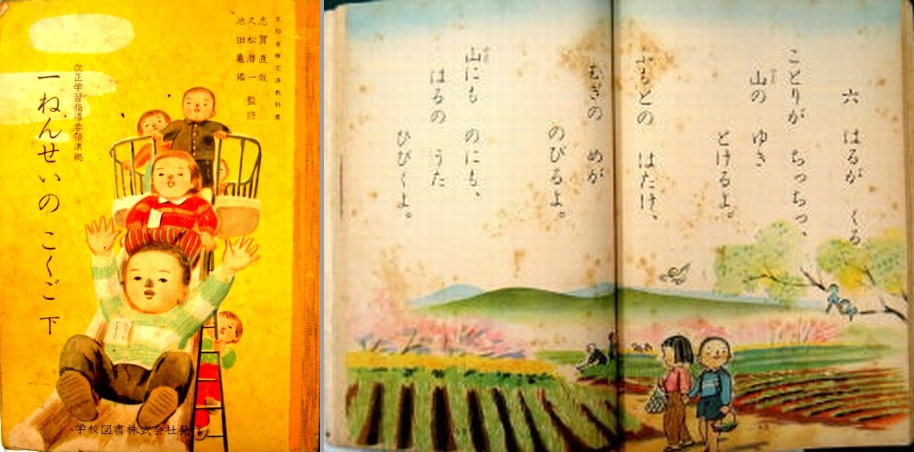 文部省検定済教科書
志賀直哉
久松潜一
池田亀鑑
監修
改正学習指導要領準拠
一ねんせいの こくご 下
学校図書株式会社発行
六 はるが くる
ことりが ちっちっ、
山の ゆき
やま
とけるよ。
ふもとの はたけ、
むぎの めが
のびるよ。
山にも のにも、
はるの うた
ひびくよ。